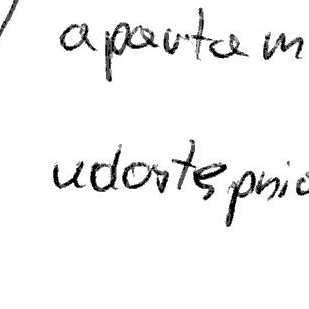 apartam
udostępnio